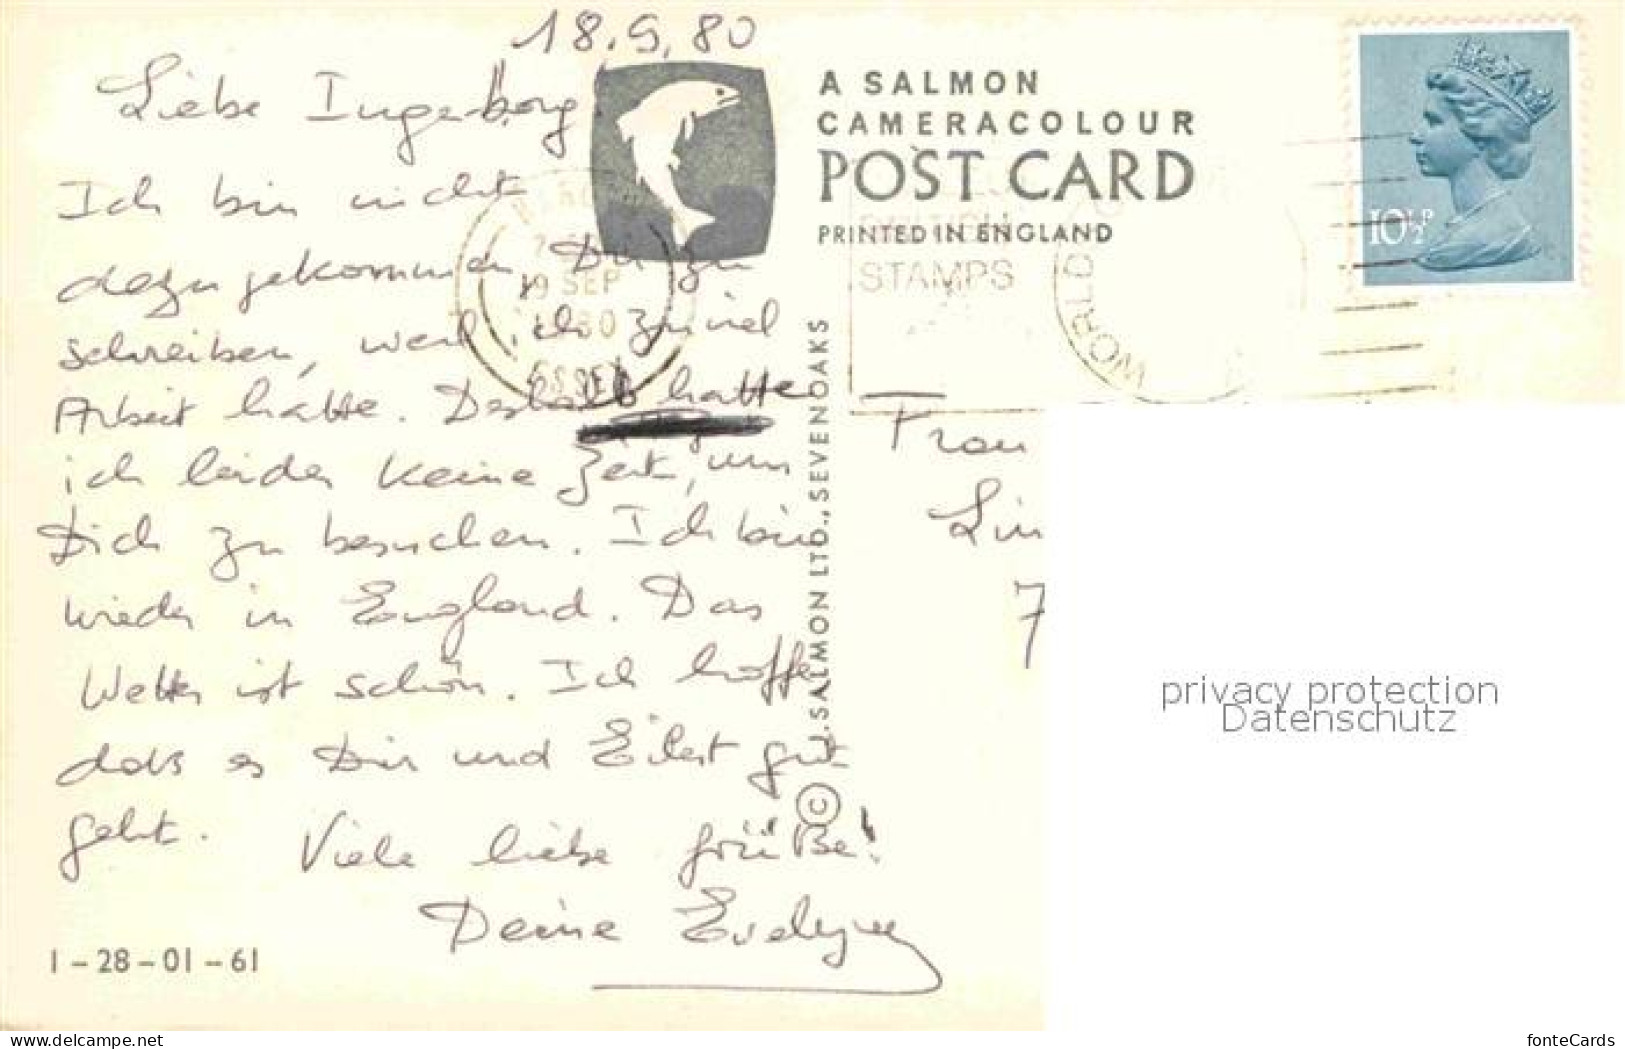 18.9.80
Liebe Ingeborg,
Ich bin nicht
dazu gekommen, Dir zu
schreiben, weil ich zuviel
Arbeit hatte. Deshalb hatte
ich leider keine Zeit, um
Dich zu besuchen. Ich bin
wieder in England. Das
Wetter ist schön. Ich hoffe,
daß es Dir und Eilert gut
geht.
Viele liebe Grüße!
Deine Evelyne
1-28-01-61
A SALMON
CAMERACOLOUR
POST CARD
PRINTED IN ENGLAND
© J. SALMON LTD., SEVENOAKS
10½P
19 SEP
1980
ESSEX
BRITISH
STAMPS
WORLD
Frau
Lin
7
privacy protection
Datenschutz
www.delcampe.net
fonteCards